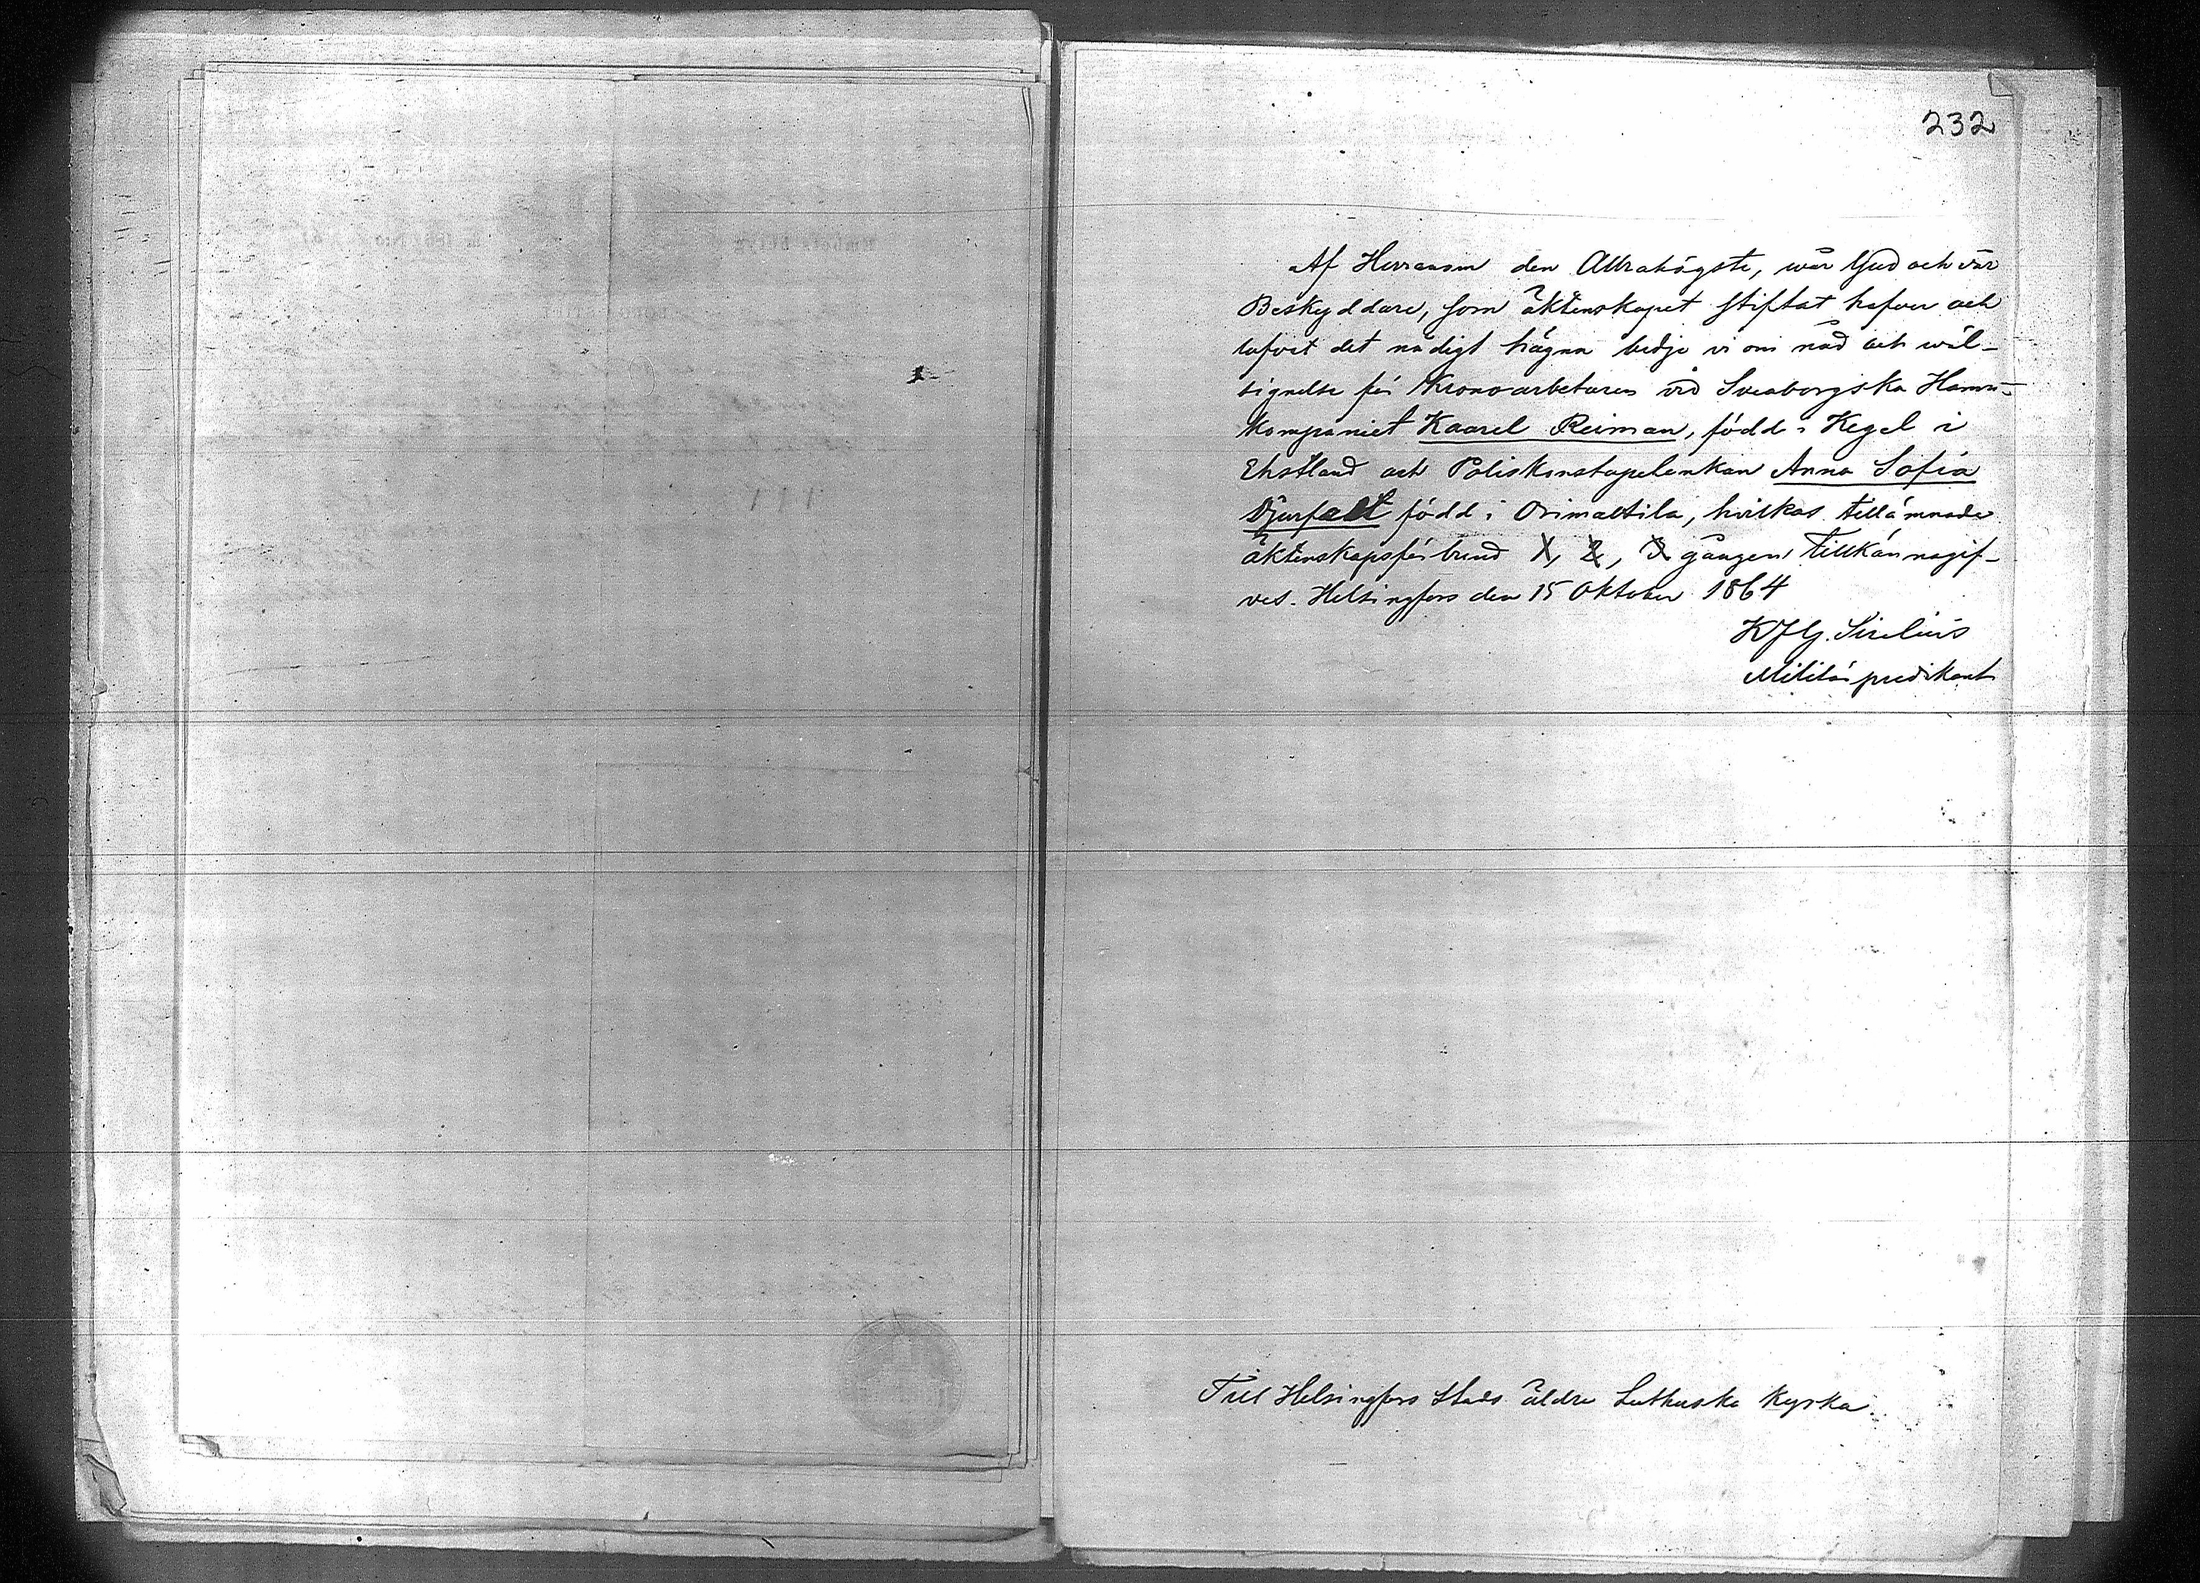 232
Af Herranom den Allrahögste, wår Gud och vår
Beskyddare, som äktenskapet stiftat hafver och
lofvet det nådigt hägna bedje vi om nåd och wäl-
signelse för Kronoarbetaren vid Sveaborgska Hamn-
kompaniet Kaarel Reiman, född i Kegel i
Ehstland och Poliskonstapelenkan Anna Sofia
Djurfalt född i Orimattila, hvilkas tillämnade
äktenskapsförbund 1, 2, 3 gången tillkännagif-
ves. Helsingfors den 15 Oktober 1864
KJG. Sirelius
Militärpredikant
Till Helsingfors Stads äldre Lutherska Kyrka.